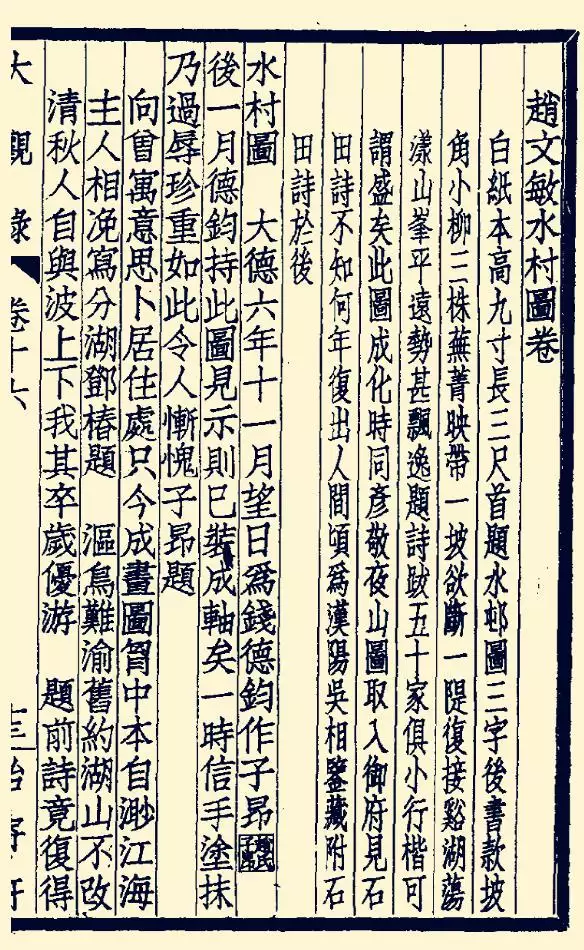 趙文敏水村圖卷
白紙本高九寸長三尺首題水邨圖三字後書款坡
角小柳三株蕪菁映帶一坡欲斷一隄復接谿湖蕩
漾山峯平遠勢甚飄逸題詩跋五十家俱小行楷可
謂盛矣此圖成化時同彥敬夜山圖取入御府見石
田詩不知何年復出人間頃爲漢陽吳相鑒藏附石
田詩於後
水村圖 大德六年十一月望日爲錢德鈞作子昂 趙氏子昂
後一月德鈞持此圖見示則已裝成軸矣一時信手塗抹
乃過辱珍重如此令人慚愧子昂題
向曾寓意思卜居住處只今成畫圖胷中本自渺江海
主人相浼寫分湖鄧椿題 漚鳥難渝舊約湖山不改
清秋人自與波上下我其卒歲優游 題前詩竟復得
大觀錄 卷十六